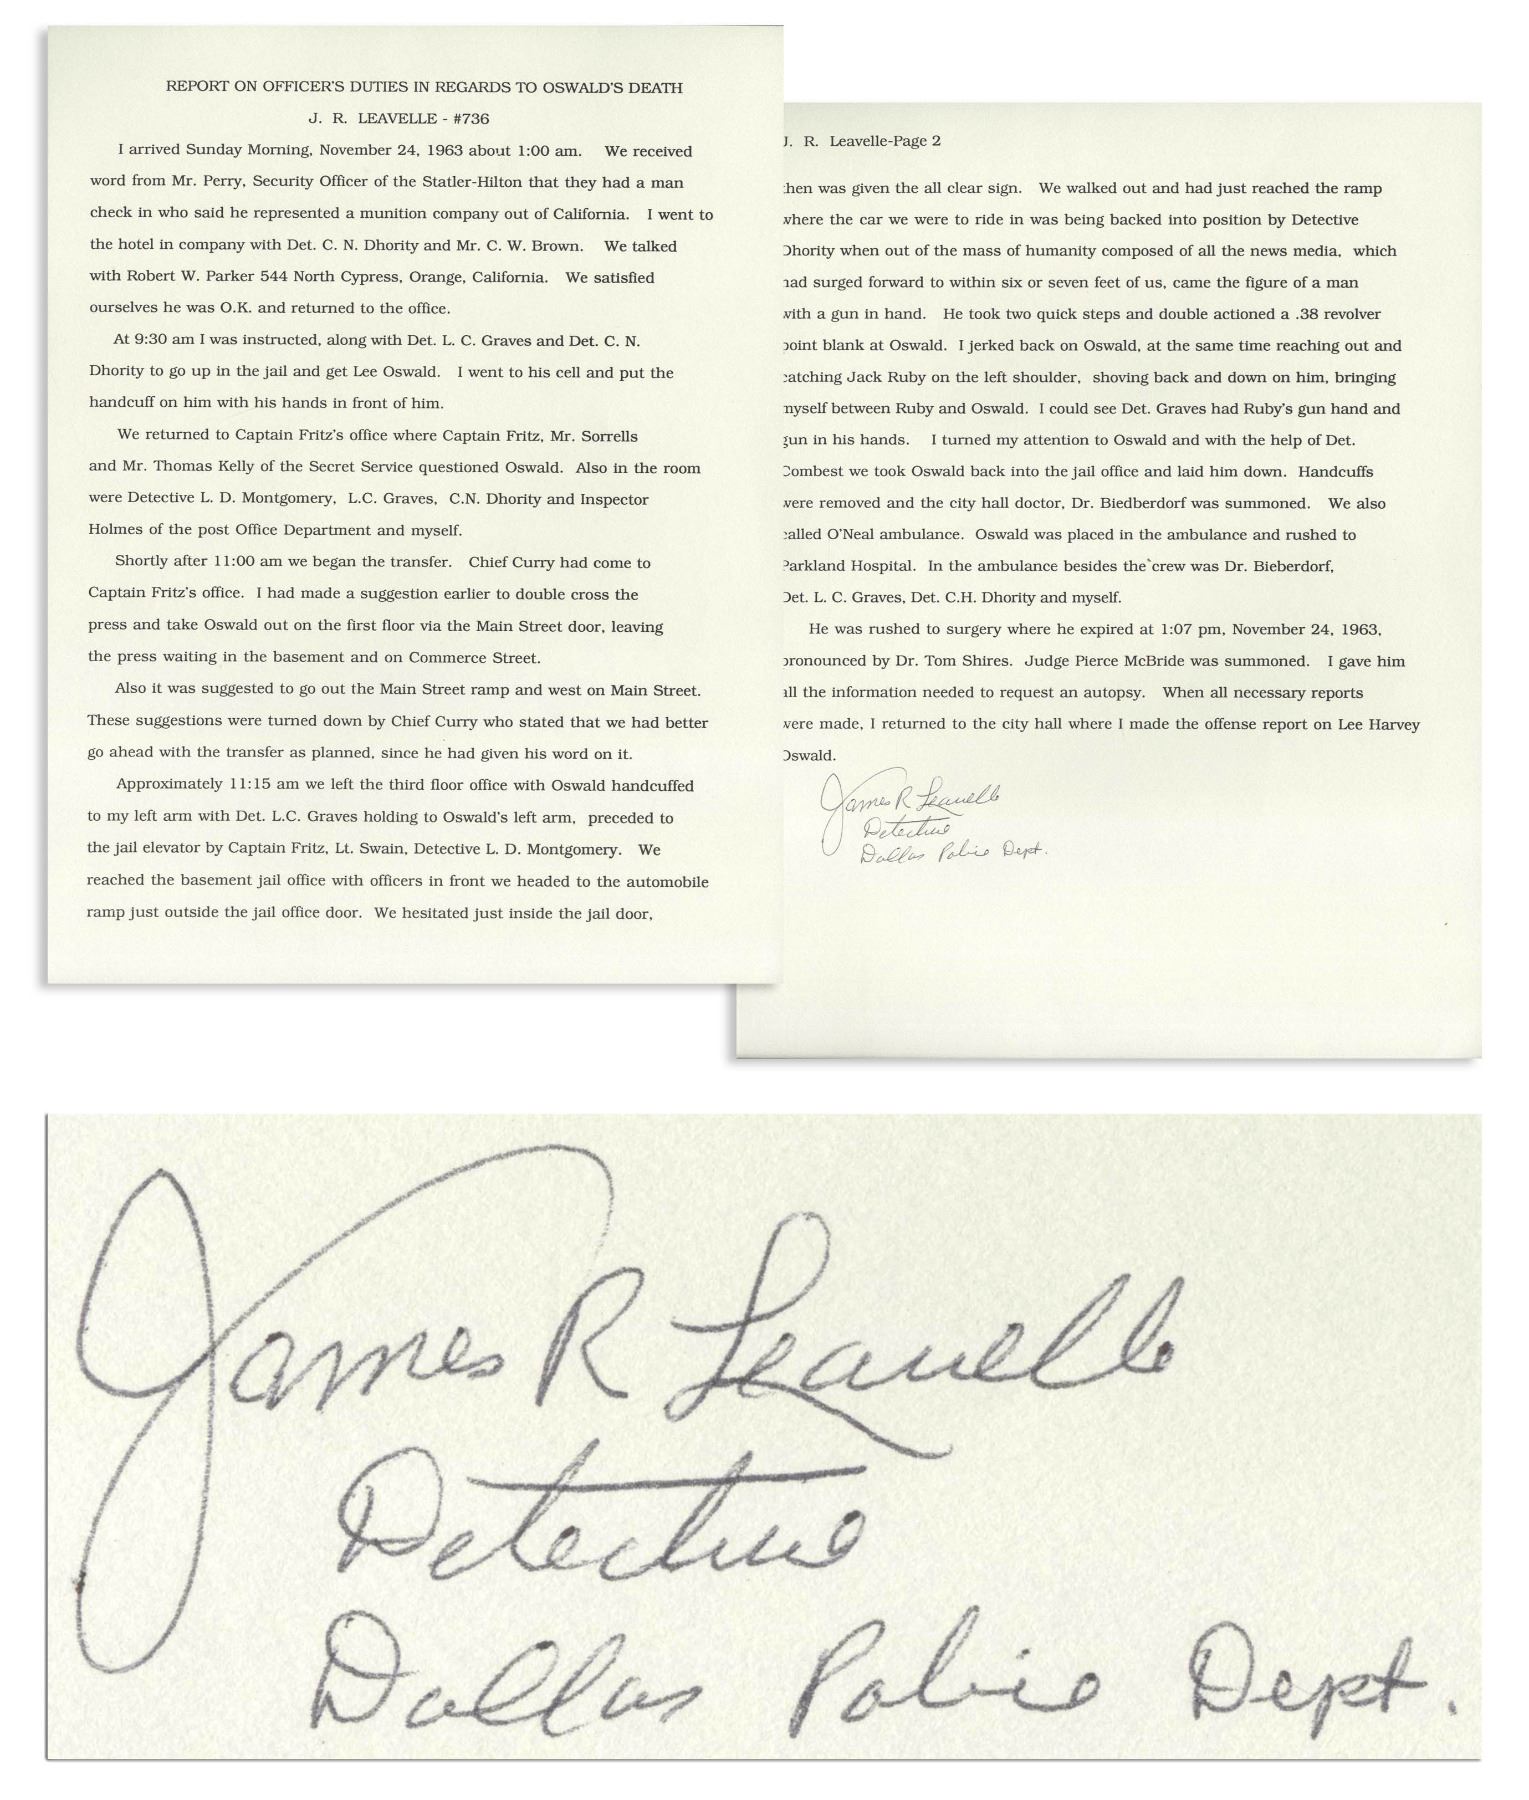 REPORT ON OFFICER'S DUTIES IN REGARDS TO OSWALD'S DEATH
J. R. LEAVELLE - #736
I arrived Sunday Morning, November 24, 1963 about 1:00 am. We received
word from Mr. Perry, Security Officer of the Statler-Hilton that they had a man
check in who said he represented a munition company out of California. I went to
the hotel in company with Det. C. N. Dhority and Mr. C. W. Brown. We talked
with Robert W. Parker 544 North Cypress, Orange, California. We satisfied
ourselves he was O.K. and returned to the office.
At 9:30 am I was instructed, along with Det. L. C. Graves and Det. C. N.
Dhority to go up in the jail and get Lee Oswald. I went to his cell and put the
handcuff on him with his hands in front of him.
We returned to Captain Fritz's office where Captain Fritz, Mr. Sorrells
and Mr. Thomas Kelly of the Secret Service questioned Oswald. Also in the room
were Detective L. D. Montgomery, L.C. Graves, C.N. Dhority and Inspector
Holmes of the post Office Department and myself.
Shortly after 11:00 am we began the transfer. Chief Curry had come to
Captain Fritz's office. I had made a suggestion earlier to double cross the
press and take Oswald out on the first floor via the Main Street door, leaving
the press waiting in the basement and on Commerce Street.
Also it was suggested to go out the Main Street ramp and west on Main Street.
These suggestions were turned down by Chief Curry who stated that we had better
go ahead with the transfer as planned, since he had given his word on it.
Approximately 11:15 am we left the third floor office with Oswald handcuffed
to my left arm with Det. L.C. Graves holding to Oswald's left arm, preceded to
the jail elevator by Captain Fritz, Lt. Swain, Detective L. D. Montgomery. We
reached the basement jail office with officers in front we headed to the automobile
ramp just outside the jail office door. We hesitated just inside the jail door,
J. R. Leavelle-Page 2
then was given the all clear sign. We walked out and had just reached the ramp
where the car we were to ride in was being backed into position by Detective
Dhority when out of the mass of humanity composed of all the news media, which
had surged forward to within six or seven feet of us, came the figure of a man
with a gun in hand. He took two quick steps and double actioned a .38 revolver
point blank at Oswald. I jerked back on Oswald, at the same time reaching out and
catching Jack Ruby on the left shoulder, shoving back and down on him, bringing
myself between Ruby and Oswald. I could see Det. Graves had Ruby's gun hand and
gun in his hands. I turned my attention to Oswald and with the help of Det.
Combest we took Oswald back into the jail office and laid him down. Handcuffs
were removed and the city hall doctor, Dr. Biedberdorf was summoned. We also
called O'Neal ambulance. Oswald was placed in the ambulance and rushed to
Parkland Hospital. In the ambulance besides the crew was Dr. Bieberdorf,
Det. L. C. Graves, Det. C.H. Dhority and myself.
He was rushed to surgery where he expired at 1:07 pm, November 24, 1963,
pronounced by Dr. Tom Shires. Judge Pierce McBride was summoned. I gave him
all the information needed to request an autopsy. When all necessary reports
were made, I returned to the city hall where I made the offense report on Lee Harvey
Oswald.
James R Leavelle
Detective
Dallas Police Dept.
James R Leavelle
Detective
Dallas Police Dept.